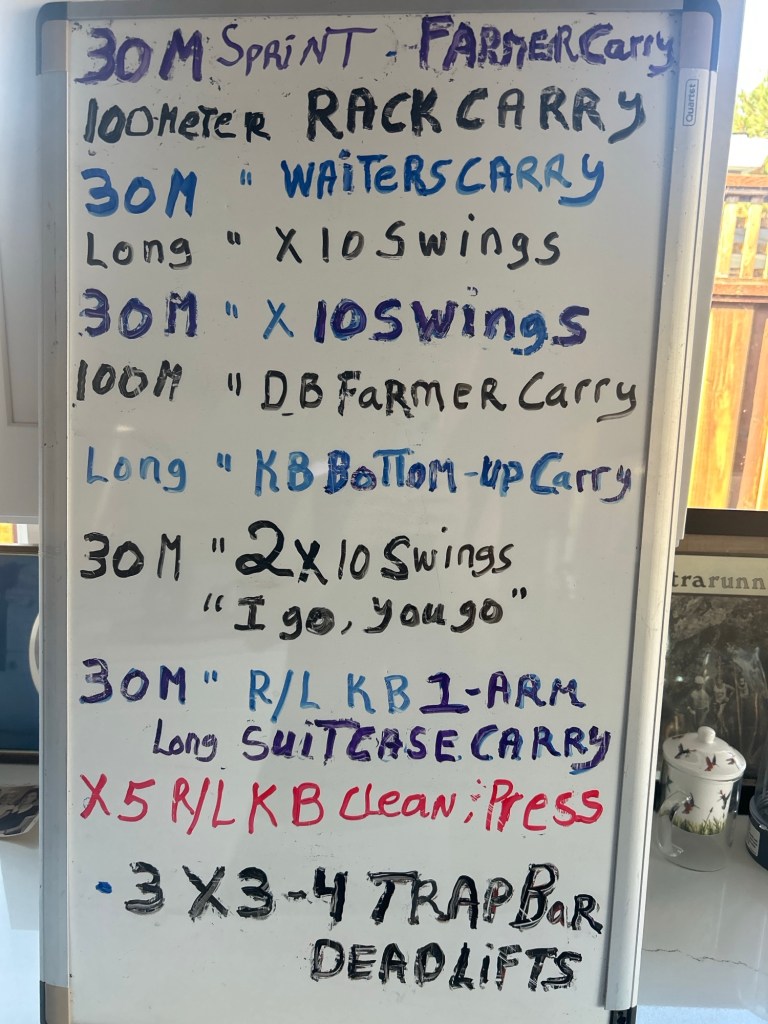 30M SPRINT - FARMER Carry
100 METER RACK CARRY
30M " WAITERS CARRY
Long " X 10 Swings
30M " X 10 Swings
100M " DB FARMER Carry
Long " KB BOTTOM-UP Carry
30M " 2X10 Swings
"I go, you go"
30M " R/L KB 1-ARM
Long SUITCASE CARRY
X5 R/L KB Clean ; Press
• 3 X 3-4 TRAP BAR
DEADLIFTS
Quartet
trarunn